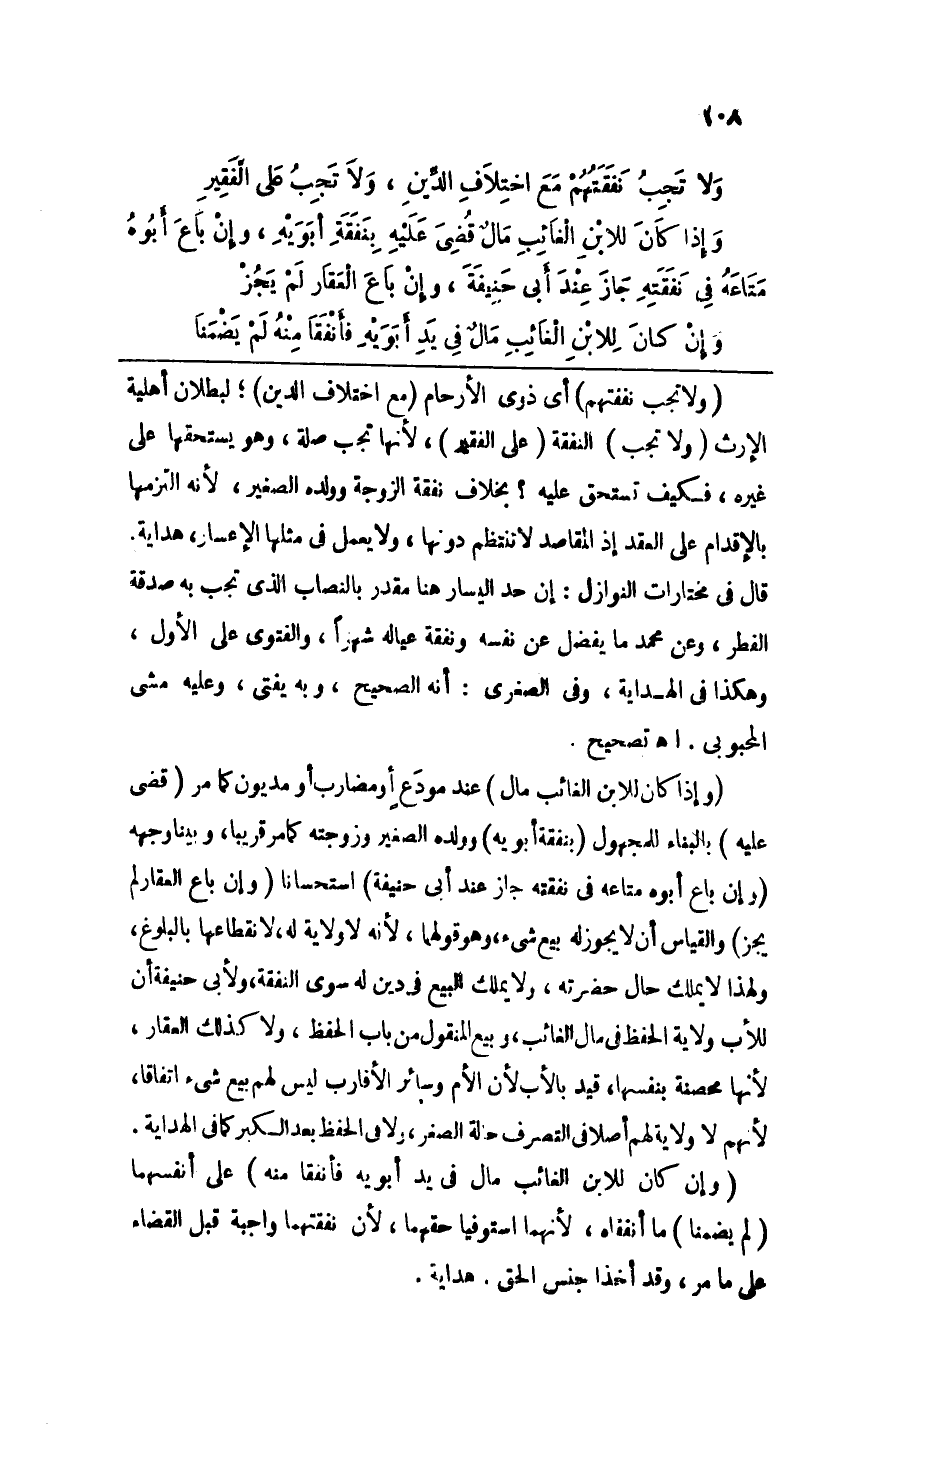 ١٠٨
وَلَا تَجِبُ نَفَقَتُهُمْ مَعَ اخْتِلَافِ الدِّينِ ، وَلَا تَجِبُ عَلَى الْفَقِيرِ
وَإِذَا كَانَ لِلِابْنِ الْغَائِبِ مَالٌ قُضِيَ عَلَيْهِ بِنَفَقَةِ أَبَوَيْهِ ، وَإِنْ بَاعَ أَبُوهُ
مَتَاعَهُ فِي نَفَقَتِهِ جَازَ عِنْدَ أَبِي حَنِيفَةَ ، وَإِنْ بَاعَ الْعَقَارَ لَمْ يَجُزْ
وَإِنْ كَانَ لِلِابْنِ الْغَائِبِ مَالٌ فِي يَدِ أَبَوَيْهِ فَأَنْفَقَا مِنْهُ لَمْ يَضْمَنَا
( ولا تجب نفقتهم ) أى ذوى الأرحام ( مع اختلاف الدين ) ؛ لبطلان أهلية
الإرث ( ولا تجب ) النفقة ( على الفقير ) ، لأنها تجب صلة ، وهو يستحقها على
غيره ، فكيف تستحق عليه ؟ بخلاف نفقة الزوجة وولده الصغير ، لأنه التزمها
بالإقدام على العقد إذ المقاصد لا تنتظم دونها ، ولا يعمل فى مثلها الإعسار، هداية.
قال فى مختارات النوازل : إن حد اليسار هنا مقدر بالنصاب الذى تجب به صدقة
الفطر ، وعن محمد ما يفضل عن نفسه ونفقة عياله شهراً ، والفتوى على الأول ،
وهكذا فى الهداية ، وفى الصغرى : أنه الصحيح ، وبه يفتى ، وعليه مشى
المحبوبى . اه تصحيح .
( وإذا كان للابن الغائب مال ) عند مودَع أو مضارب أو مديون كما مر ( قضى
عليه ) بالبناء للمجهول ( بنفقة أبويه ) وولده الصغير وزوجته كما مر قريبا، وبينا وجهه
( وإن باع أبوه متاعه فى نفقته جاز عند أبى حنيفة ) استحسانا ( وإن باع العقار لم
يجز ) والقياس أن لا يجوز له بيع شىء، وهو قولهما ، لأنه لا ولاية له، لانقطاعها بالبلوغ،
ولهذا لا يملك حال حضرته ، ولا يملك البيع فى دين له سوى النفقة، ولأبى حنيفة أن
للأب ولاية الحفظ فى مال الغائب، وبيع المنقول من باب الحفظ ، ولا كذلك العقار ،
لأنها محصنة بنفسها، قيد بالأب لأن الأم وسائر الأقارب ليس لهم بيع شىء اتفاقا،
لأنهم لا ولاية لهم أصلا فى التصرف حالة الصغر، ولا فى الحفظ بعد الكبر كما فى الهداية .
( وإن كان للابن الغائب مال فى يد أبويه فأنفقا منه ) على أنفسهما
( لم يضمنا ) ما أنفقاه ، لأنهما استوفيا حقهما ، لأن نفقتهما واجبة قبل القضاء
على ما مر ، وقد أخذا جنس الحق . هداية .